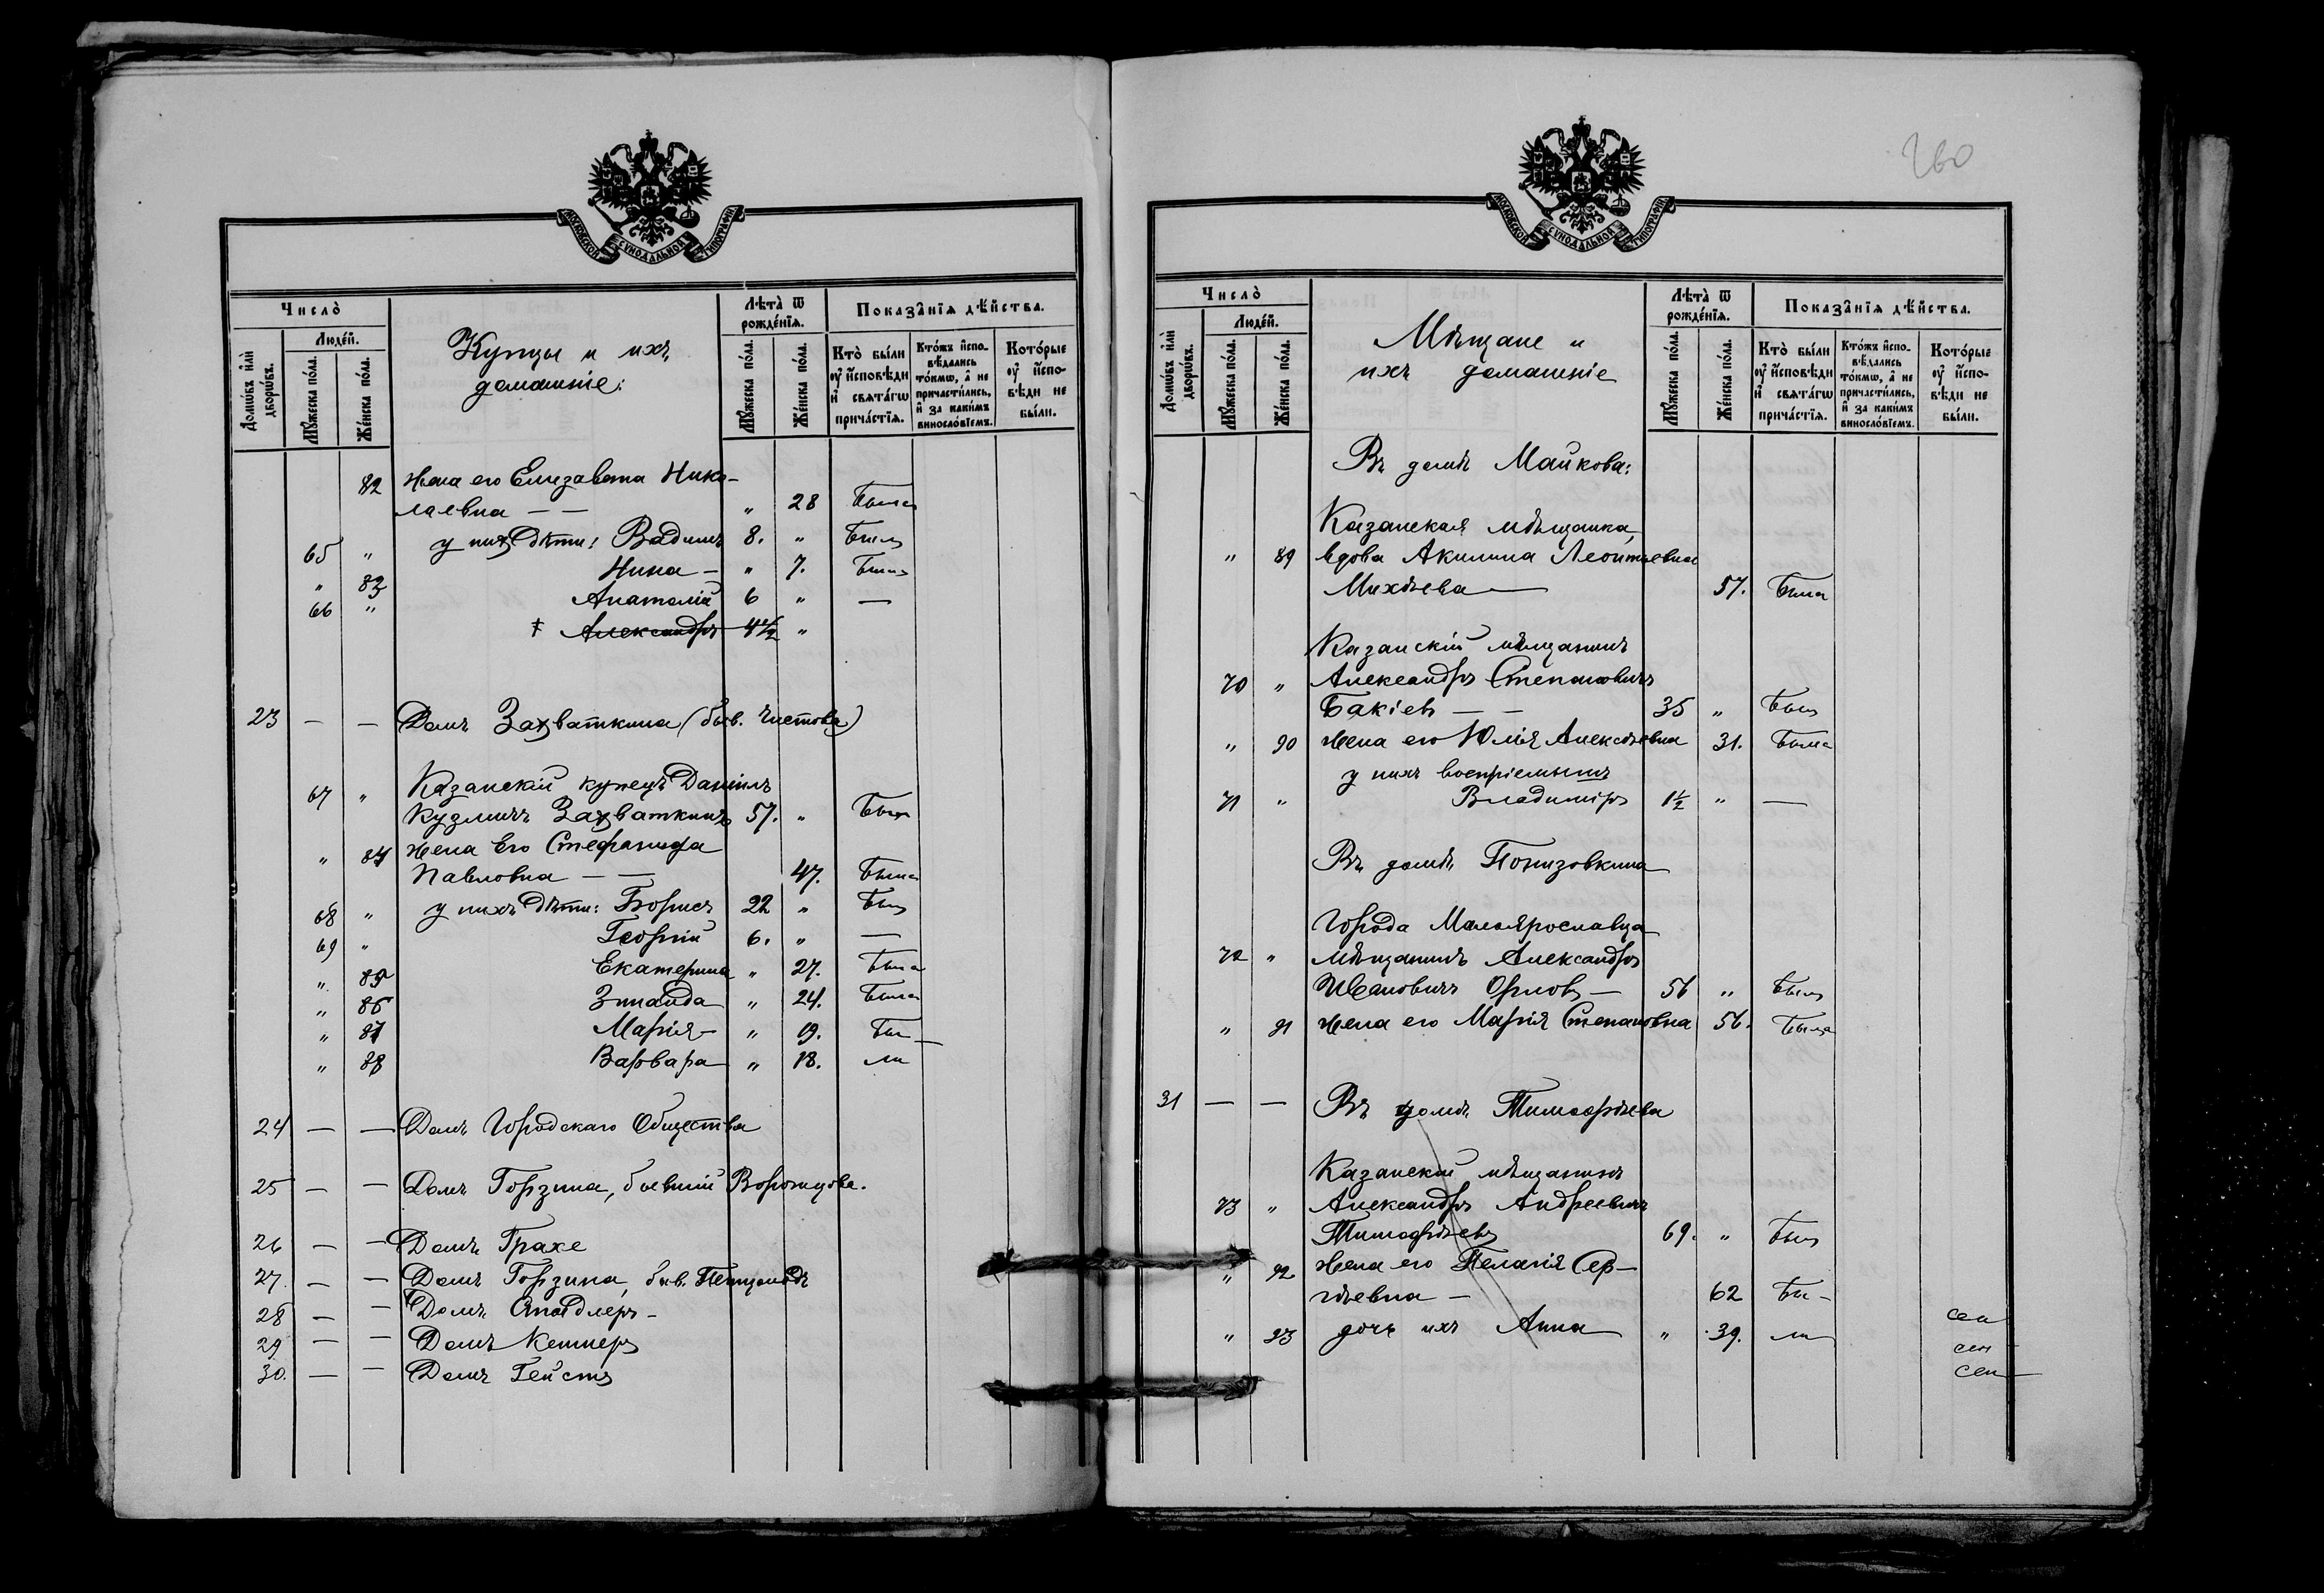 МОСКОВСКОЙ СѴНОДАЛЬНОЙ ТИПОГРАФІИ
Число̀
Людéй.
Домѡ́въ и҆лѝ дворѡ́въ.
Мꙋ́жеска по́ла.
Же́нска по́ла.
Купцы и ихъ
домашніе:
Лѣта̀ ѿ
рожде́нїѧ.
Мꙋ́жеска по́ла.
Же́нска по́ла.
Показа̑нїѧ дѣ́йства.
Кто̀ бы́ли
оу҆ и҆сповѣди
и҆ свѧта́гѡ
прича́стїѧ.
Кто́жъ и҆спо-
вѣ́дались
то́кмѡ, а҆ не
причасти́лись,
и҆ за каки́мъ
винословїемъ.
Кото́рые
оу҆ и҆спо-
вѣди не
бы́ли.
82 Жена его Елизавета Нико-
лаевна — — " 28 Была
65 " у нихъ дѣти: Вадимъ 8. " Былъ
" 83 Нина — " 7. Была
66 " Анатолій 6 " —
‡ Александръ 4½ "
23 — — Домъ Захваткина (быв. Чистова)
67 " Казанскій купецъ Даніилъ
Кузмичъ Захваткинъ 57. " Былъ
" 84 Жена Его Стефанида
Павловна — — 47. Была
68 " у нихъ дѣти: Борисъ 22 " Былъ
69 " Георгій 6. " —
" 85 Екатерина " 27. Была
" 86 Зинаида " 24. Была
" 87 Марія — " 19. Бы—
" 88 Варвара " 18. ли
24 — — Домъ Городскаго Общества
25 — — Домъ Горзина, бывшій Ворожцова.
26 — — Домъ Грахе
27. — — Домъ Горзина, быв. Петцольдъ
28 — — Домъ Стадлеръ —
29 — — Домъ Келлеръ
30. — — Домъ Гейстъ
260
МОСКОВСКОЙ СѴНОДАЛЬНОЙ ТИПОГРАФІИ
Число̀
Людéй.
Домѡ́въ и҆лѝ дворѡ́въ.
Мꙋ́жеска по́ла.
Же́нска по́ла.
Мѣщане и
ихъ домашніе
Лѣта̀ ѿ
рожде́нїѧ.
Мꙋ́жеска по́ла.
Же́нска по́ла.
Показа̑нїѧ дѣ́йства.
Кто̀ бы́ли
оу҆ и҆сповѣди
и҆ свѧта́гѡ
прича́стїѧ.
Кто́жъ и҆спо-
вѣ́дались
то́кмѡ, а҆ не
причасти́лись,
и҆ за каки́мъ
винословїемъ.
Кото́рые
оу҆ и҆спо-
вѣди не
бы́ли.
Въ домѣ Майкова:
Казанская мѣщанка,
" 89 вдова Акилина Леонтьевна
Михѣева — 57. Была
Казанскій мѣщанинъ
70 " Александръ Степановичъ
Бакіевъ — — 35 " Былъ
" 90 Жена его Юлія Алексѣевна 31. Была
у нихъ воспріемышъ
71 " Владиміръ 1½ " —
Въ домѣ Понизовкина
Города Малоярославца
72 " мѣщанинъ Александръ
Ивановичъ Орловъ — 56 " Былъ
" 91 Жена его Марія Степановна 56. Была
31 — — Въ домѣ Тимофѣева
Казанскій мѣщанинъ
73 " Александръ Андреевичъ
Тимофѣевъ 69. " Былъ
" 92 Жена его Пелагія Сер-
гѣевна — 62 Бы—
" 93 дочь ихъ Анна " 39. ли